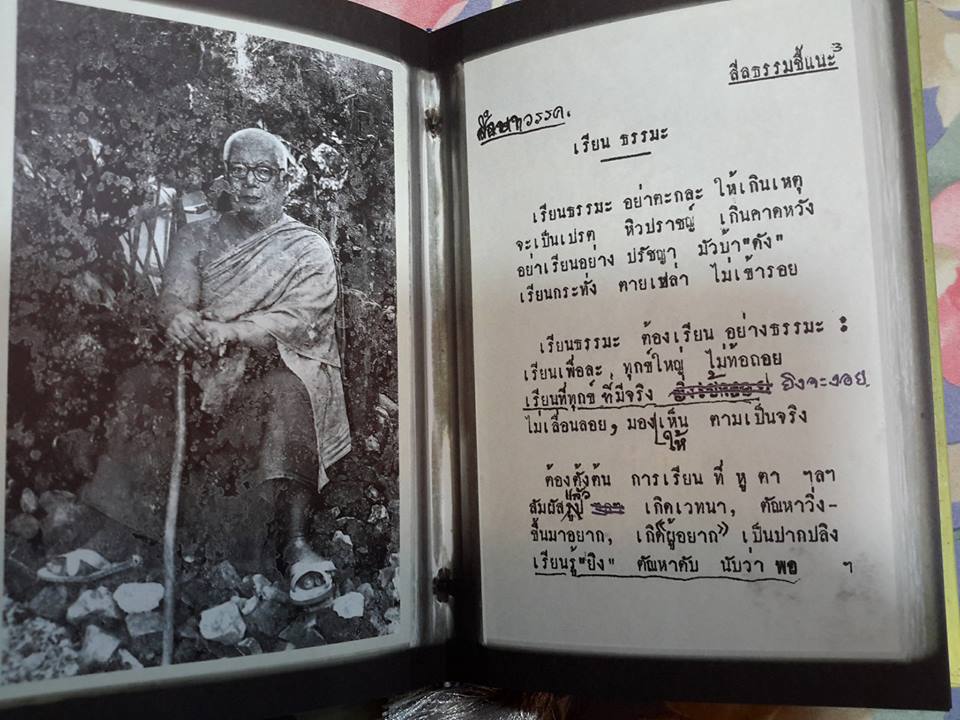 ศีลธรรมชี้แนะ 3
วรรค.
เรียน ธรรมะ
เรียนธรรมะ อย่าตะกละ ให้เกินเหตุ
จะเป็นเปรต หิวปราชญ์ เกินคาดหวัง
อย่าเรียนอย่าง ปรัชญา มัวบ้า"ดัง"
เรียนกระทั่ง ตายเหล่า ไม่เข้ารอย
เรียนธรรมะ ต้องเรียน อย่างธรรมะ :
เรียนเพื่อละ ทุกข์ใหญ่ ไม่ท้อถอย
เรียนที่ทุกข์ ที่มีจริง ยิ่งจะงอย
ไม่เลื่อนลอย, มองให้เห็น ตามเป็นจริง
ต้องตั้งต้น การเรียน ที่ หู ตา ฯลฯ
สัมผัส แล้ว เกิดเวทนา, ตัณหาวิ่ง-
ขึ้นมาอยาก, เกิด"ผู้อยาก" เป็นปากปลิง
เรียนรู้"ยิง" ตัณหาดับ นับว่า พอ ฯ